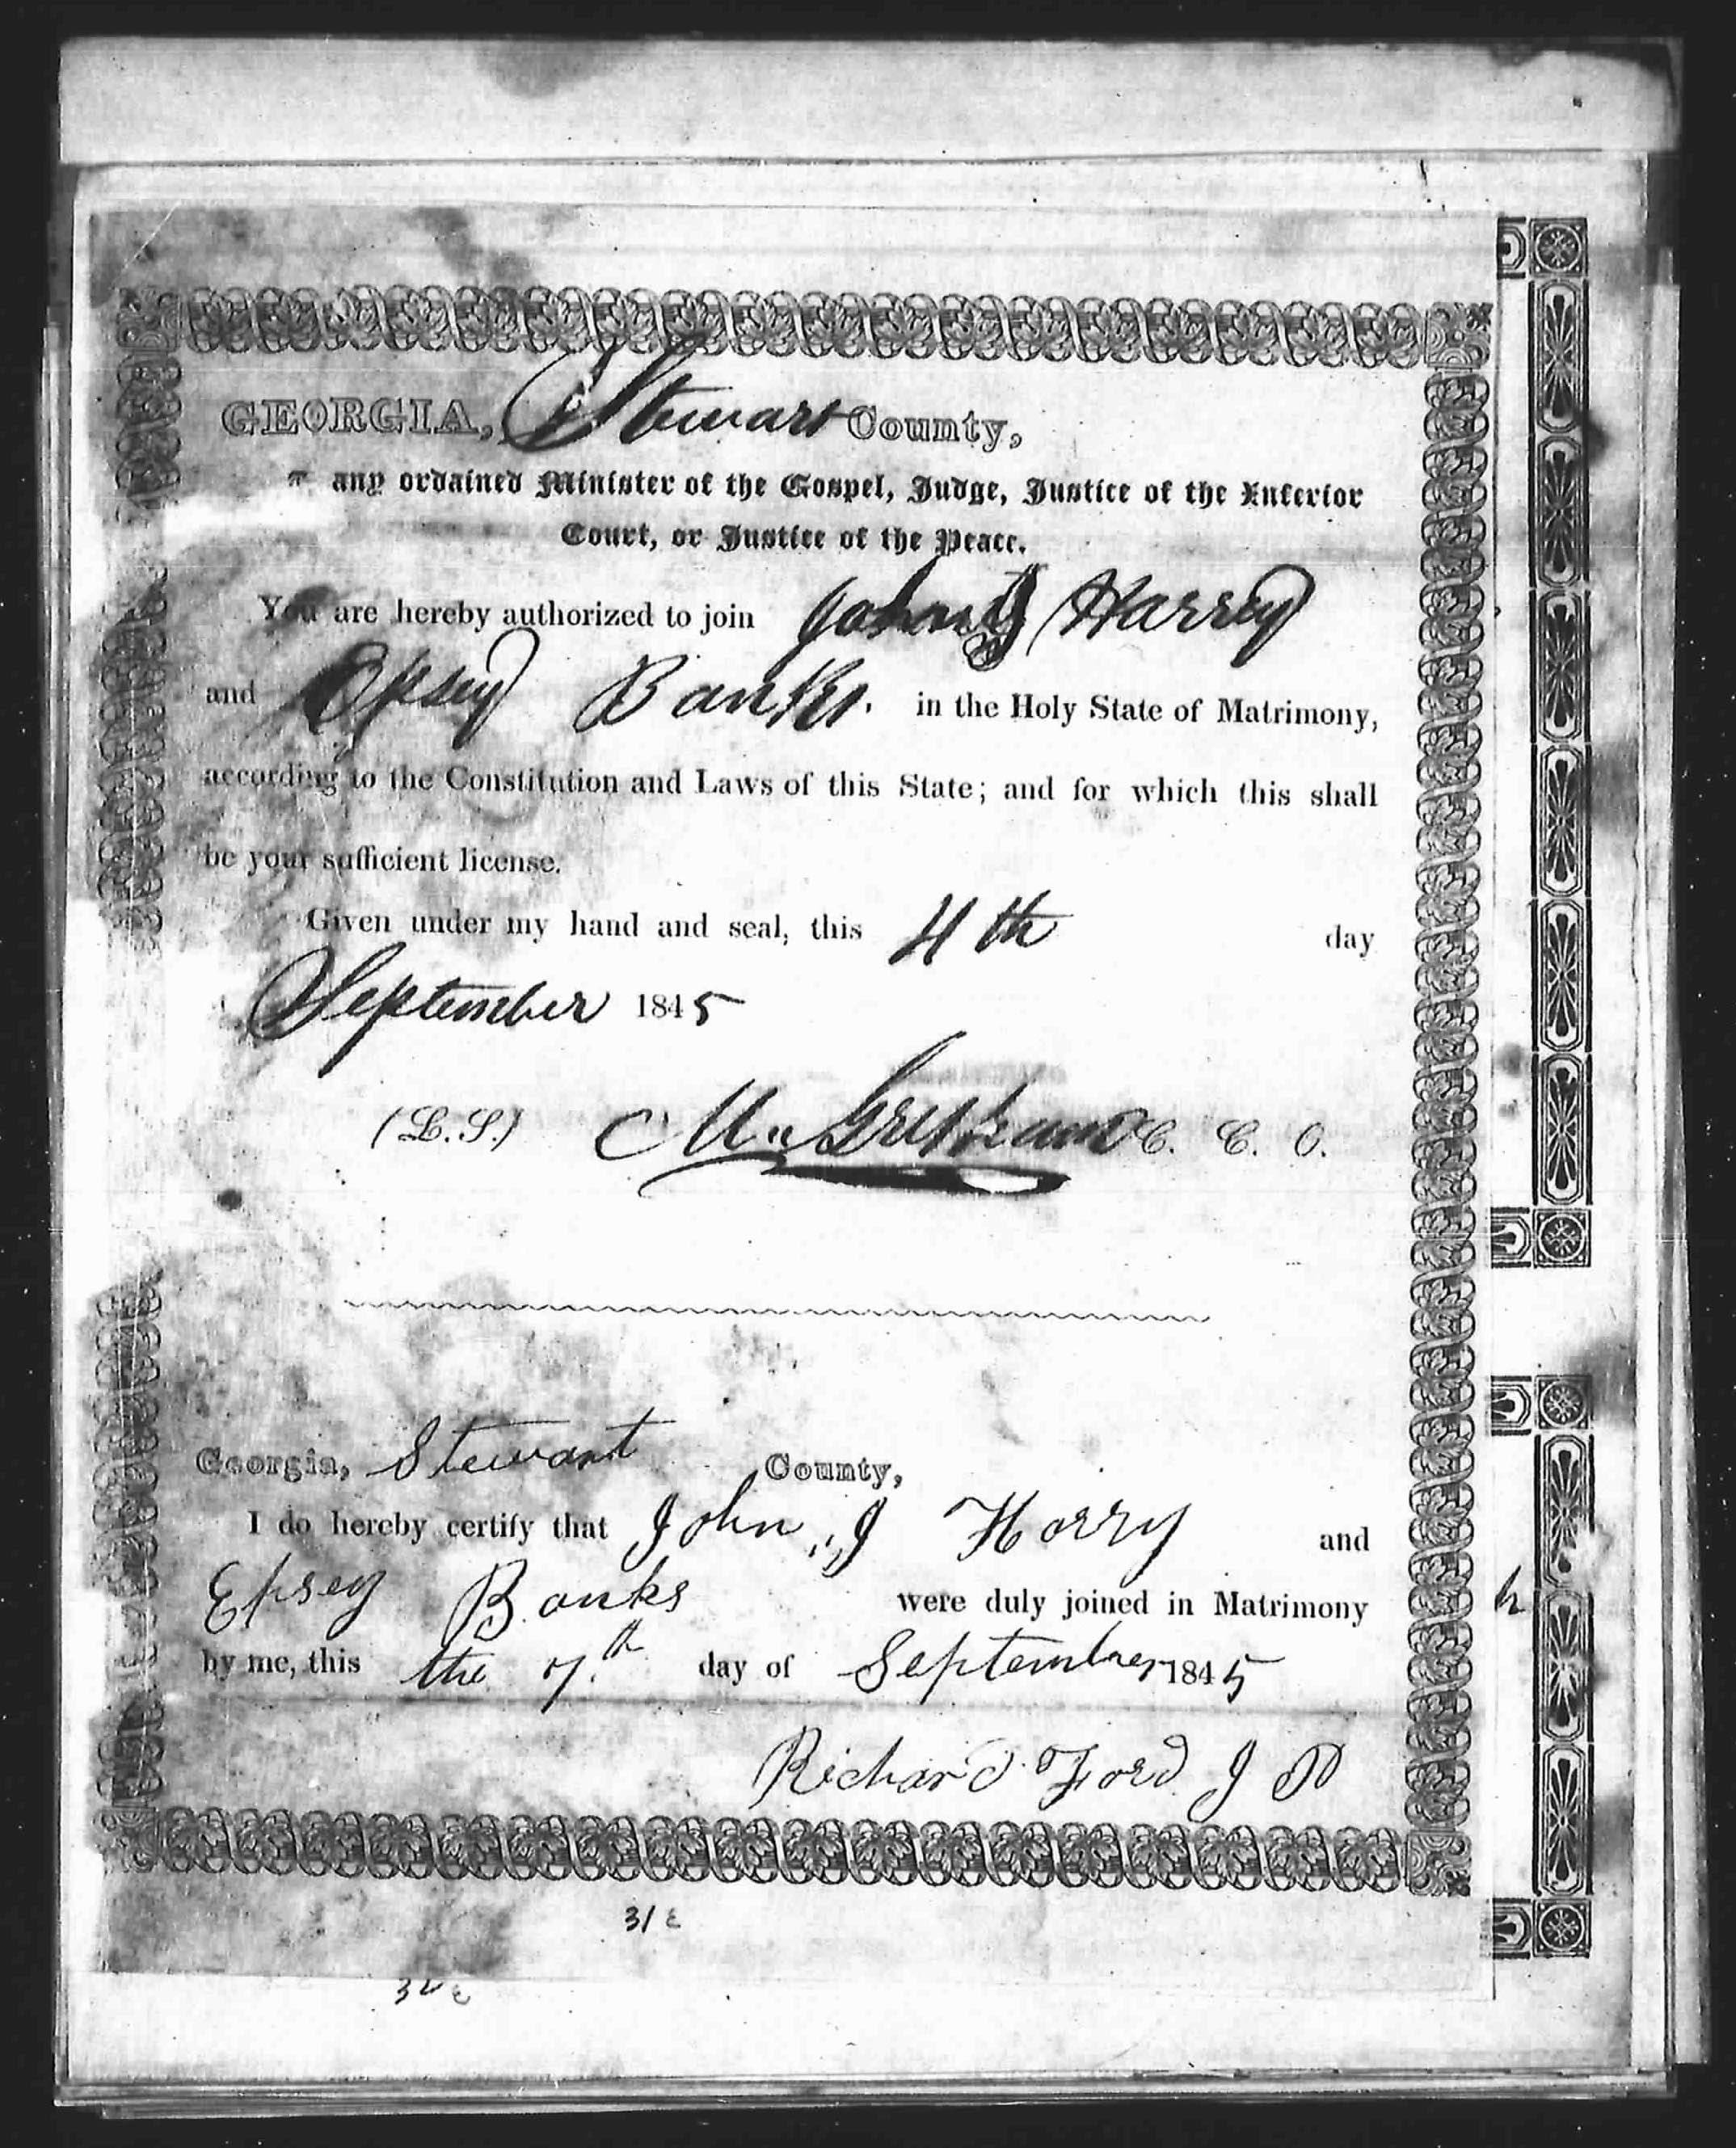 GEORGIA, Stewart County,
any ordained Minister of the Gospel, Judge, Justice of the Inferior
Court, or Justice of the Peace.
You are hereby authorized to join John J Harrey
and Epsey Banks. in the Holy State of Matrimony,
according to the Constitution and Laws of this State; and for which this shall
be your sufficient license.
Given under my hand and seal, this 4th day
September 1845
(L.S.) M. C. C. O.
Georgia, Stewart County,
I do hereby certify that John J Horry and
Epsey Banks were duly joined in Matrimony
by me, this the 7th day of September 1845
Richard Ford J P
31